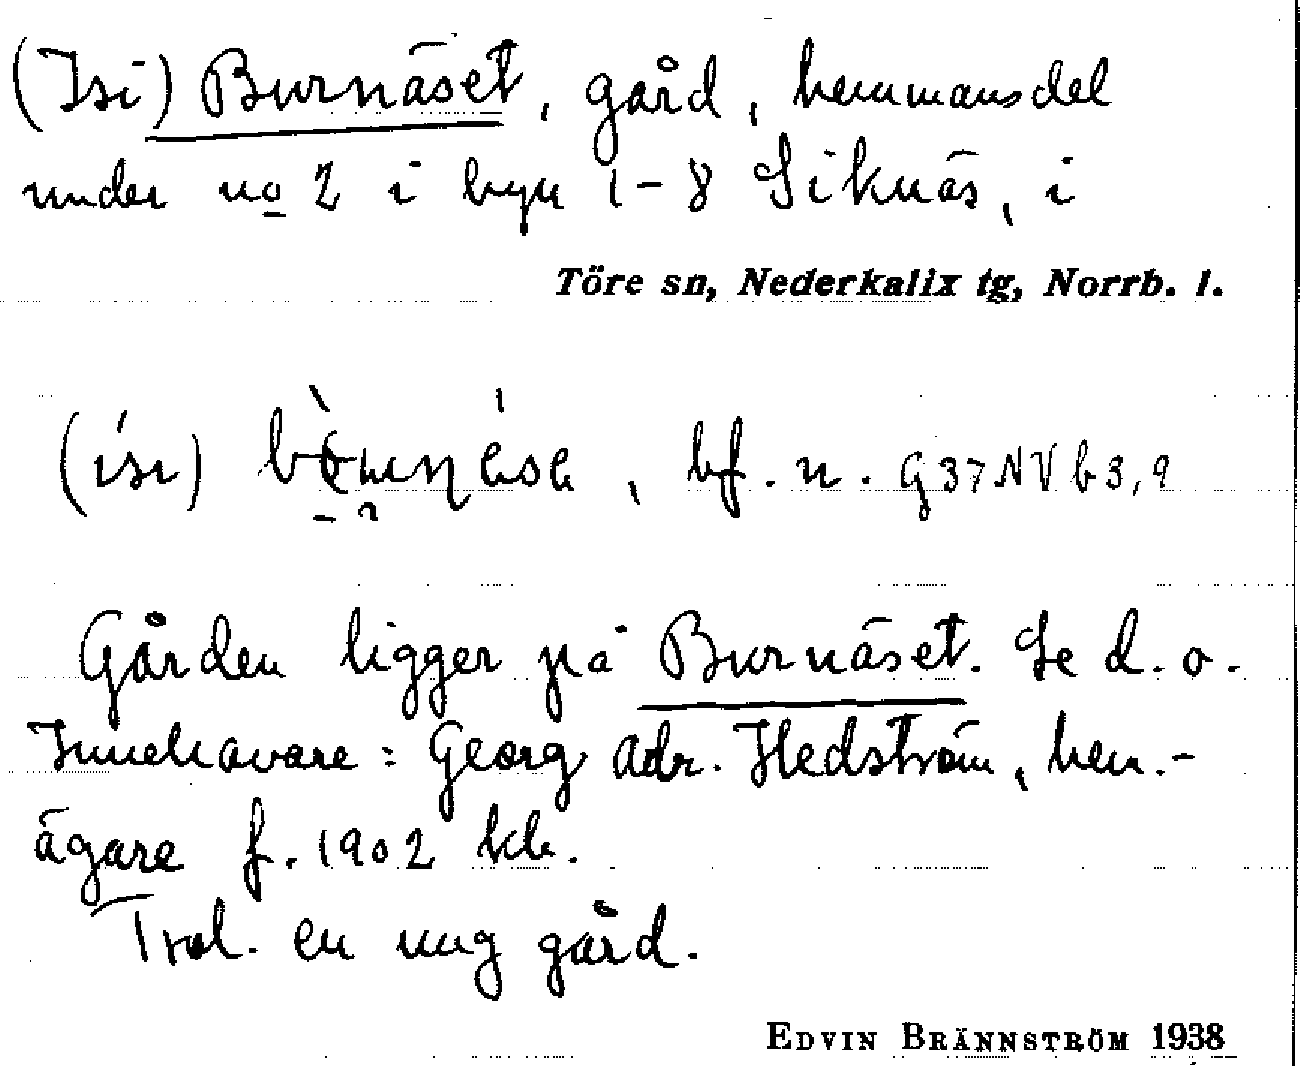 (Isi) Burnäset, gård, hemmansdel
under no 2 i byn 1-8 Siknäs, i
Töre sn, Nederkalix tg, Norrb. l.
(ísı) , bf. n. G37NVb3,9
Gården ligger på Burnäset. Se d. o.
Innehavare: Georg Adr. Hedström, hem.-
ägare f. 1902 kb.
Trol. en ung gård.
EDVIN BRÄNNSTRÖM 1938